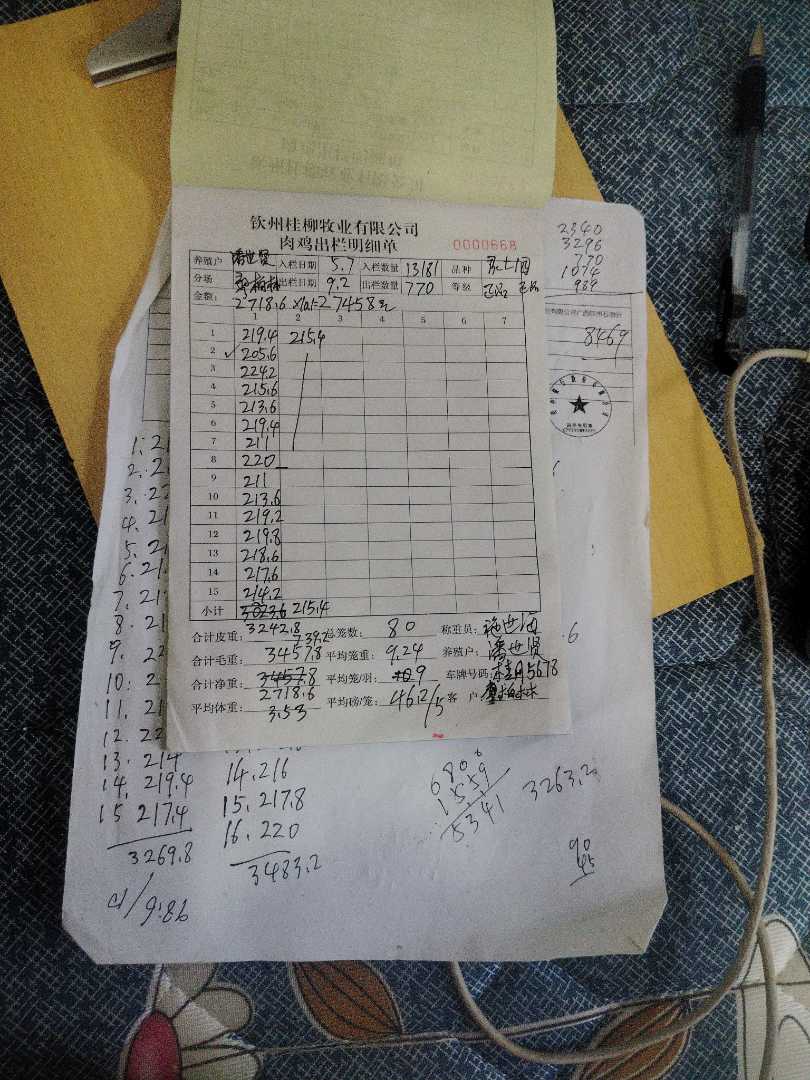 钦州桂柳牧业有限公司
肉鸡出栏明细单 0000668
养殖户 潘世贤 入栏日期 5.7 入栏数量 13181 品种
分场 出栏日期 9.2 出栏数量 770 等级
金额: 2718.6 27458元
1 2 3 4 5 6 7
1 219.4 215.4
2 205.6
3 224.2
4 215.6
5 213.6
6 219.4
7 211
8 220
9 211
10 213.6
11 219.2
12 219.8
13 218.6
14 217.6
15 214.2
小计 215.4
合计皮重: 3242.8 739.2 总笼数: 80 称重员:
合计毛重: 3457.8 平均笼重: 9.24 养殖户: 潘世贤
合计净重: 3457.8 平均笼/羽: 9 车牌号码: 5678
2718.6
平均体重: 3.53 平均磅/笼: 46.2/5 客户:
2340
3296
770
1074
989
8469
1. 21
2. 2
3. 22
4. 21
5. 21
6. 21
7. 21
8. 21
9. 22
10. 2
11. 21
12. 22
13. 214
14. 219.4
15 217.4
3269.8
9.86
14. 216
15. 217.8
16. 220
3483.2
6806
1559
5341
3263.2
90
45